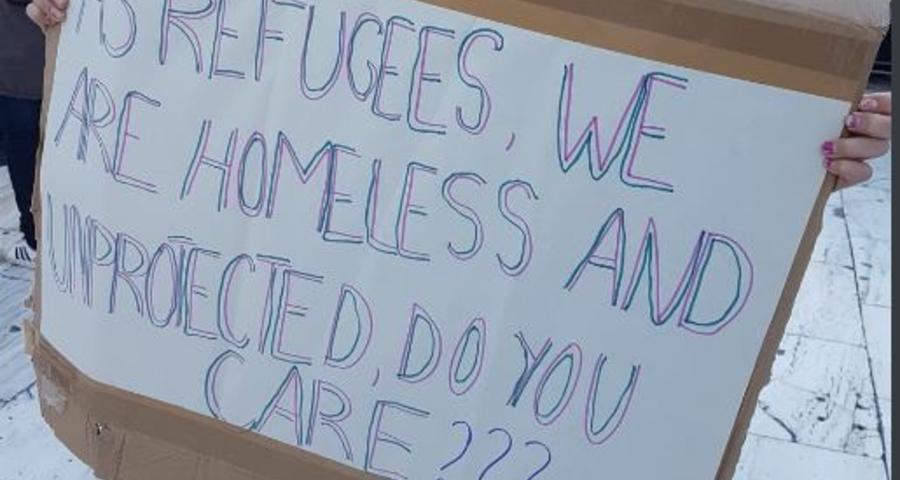 AS REFUGEES, WE
ARE HOMELESS AND
UNPROTECTED, DO YOU
CARE ???